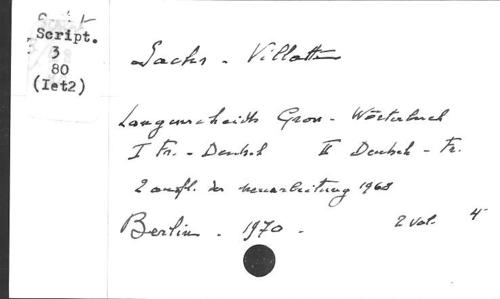 Script.
3
80
(Iet2)
Sachs - Villatte
Langenscheidts Gross - Wörterbuch
I Fr. - Deutsch II Deutsch - Fr.
2 aufl. der neuarbeitung 1968
Berlin - 1970 - 2 vol. 4°